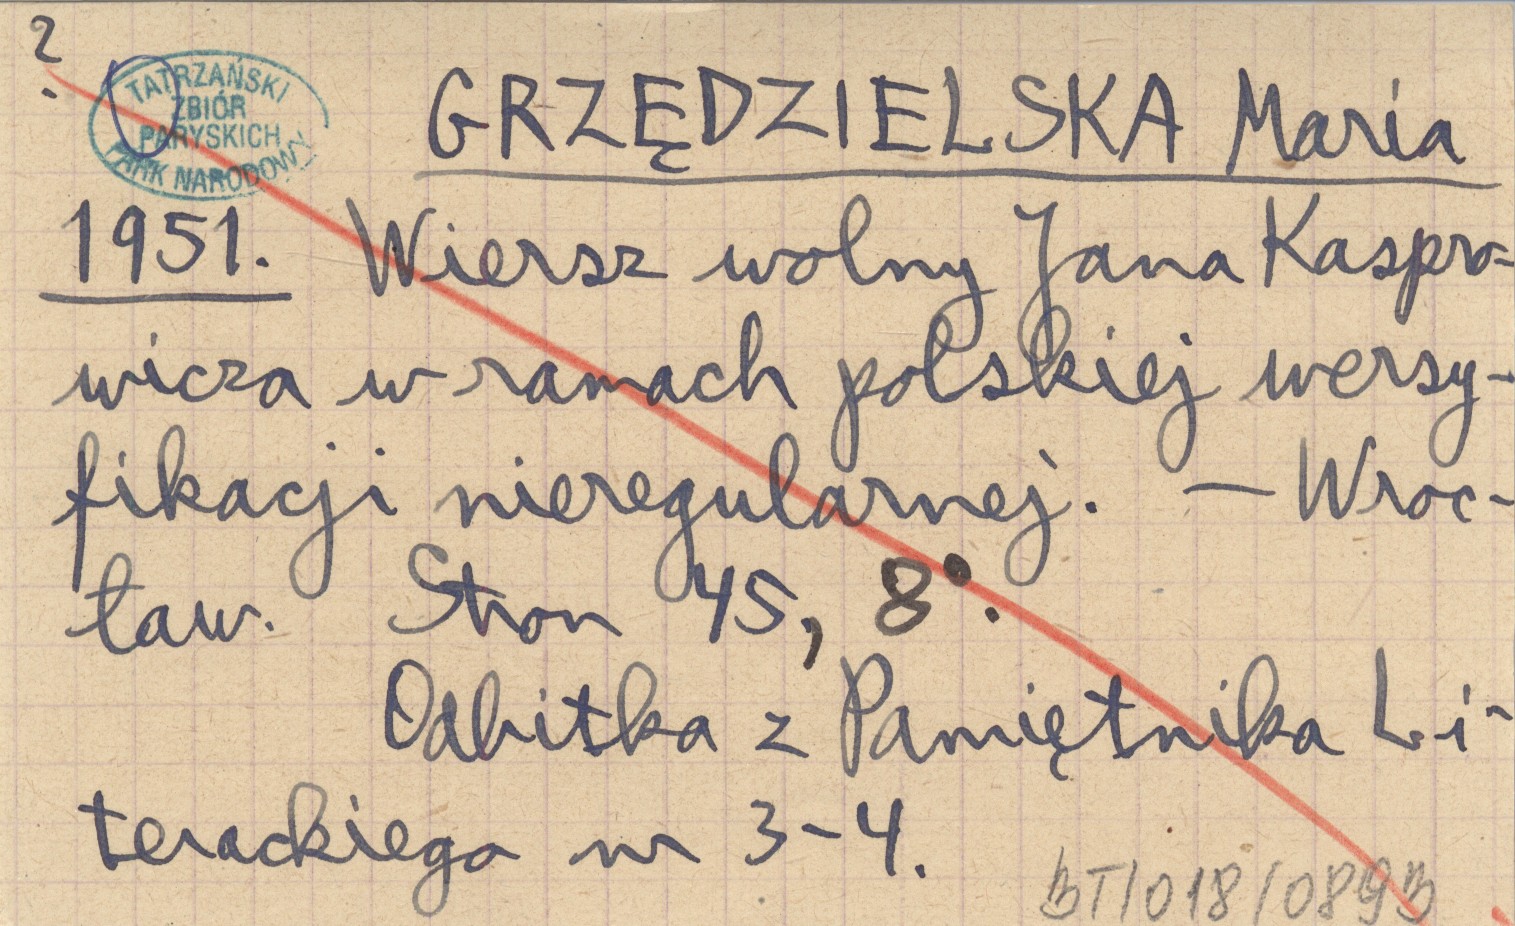 ?
TATRZAŃSKI
ZBIÓR
PARYSKICH
PARK NARODOWY
GRZĘDZIELSKA Maria
1951. Wiersz wolny Jana Kaspro-
wicza w ramach polskiej wersy-
fikacji nieregularnej. — Wroc-
ław. Stron 45, 8°.
Odbitka z Pamiętnika Li-
terackiego nr 3-4.
BT/018/0893